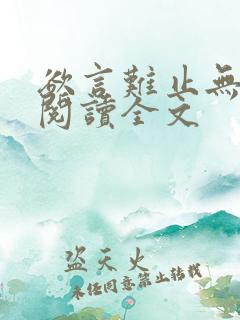 欲言難止無
閱讀全文
盜天火
未經同意禁止轉載